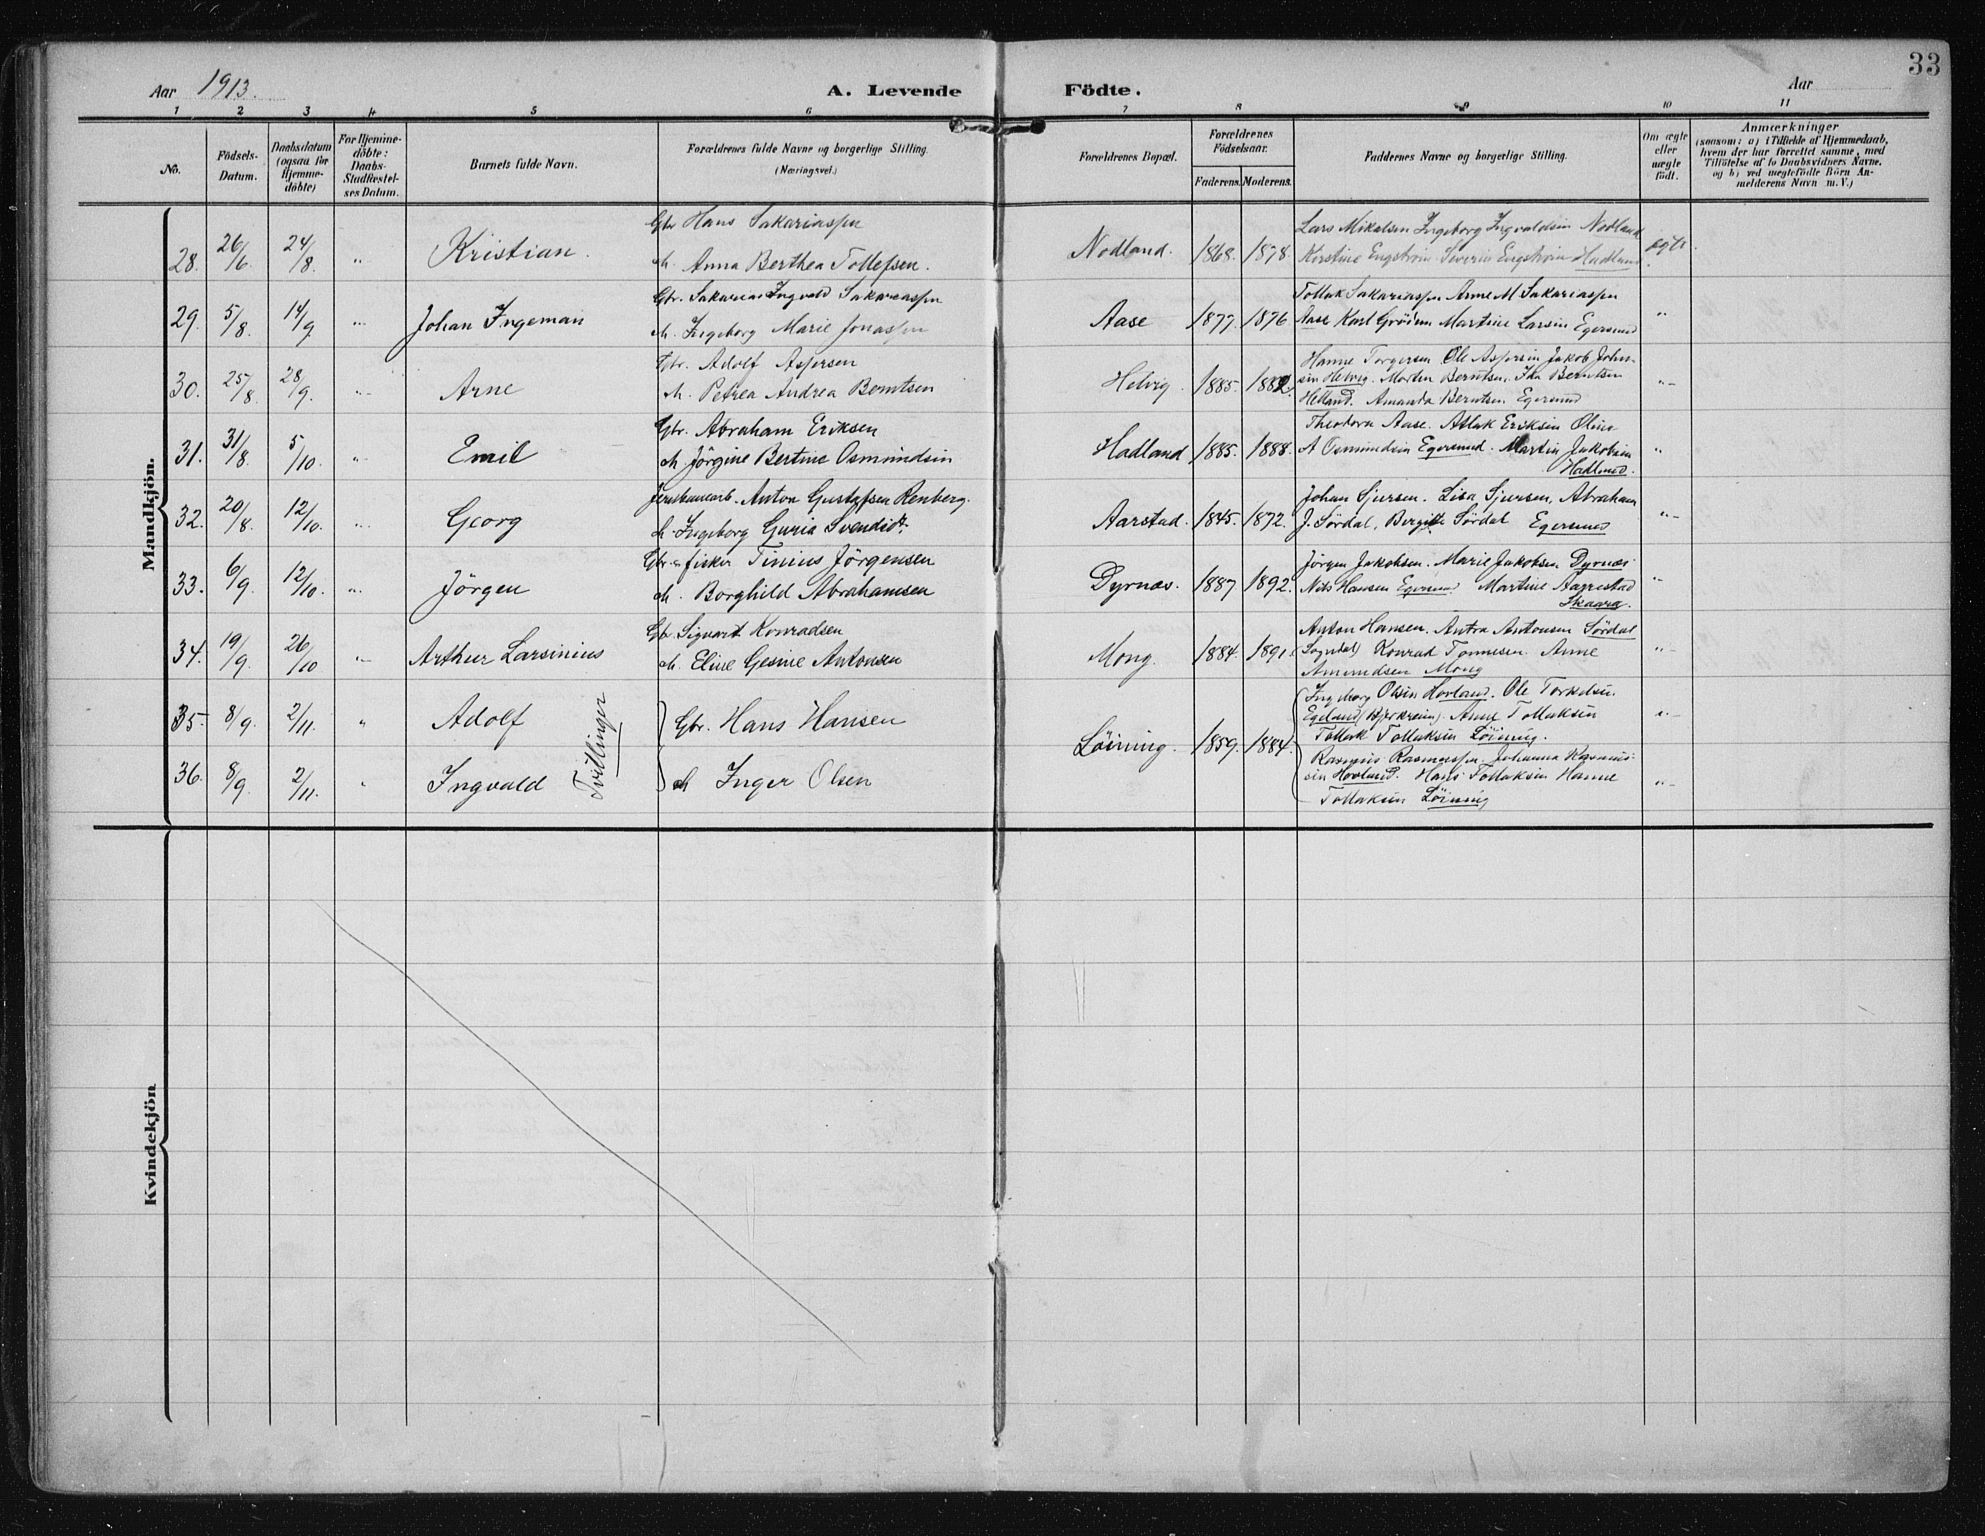 33
Aar 1913.
A. Levende Födte.
Aar
1 2 3 4 5 6 7 8 9 10 11
No.
Födsels-
Datum.
Daabsdatum
(ogsaa for
Hjemme-
döbte)
For Hjemme-
döbte:
Daabs-
Stadfestel-
ses Datum.
Barnets fulde Navn.
Forældrenes fulde Navne og borgerlige Stilling.
(Næringsvei.)
Forældrenes Bopæl.
Forældrenes
Födselsaar.
Faderens. Moderens.
Faddernes Navne og borgerlige Stilling.
Om ægte
eller
uægte
födt.
Anmærkninger
(saasom: a) i Tilfælde af Hjemmedaab,
hvem der har forrettet samme, med
Tilföielse af to Daabsvidners Navne,
og b) ved uegtefödte Börn An-
melderens Navn m. V.)
Mandkjön.
28. 26/6 24/8 " Kristian.
Gbr Hans Sakariassen
M. Anna Berthea Tollefsen.
Nodland. 1868. 1878.
Lars Mikalsen Ingeborg Ingvaldsen Nodland
Kirstine Engström Severin Engström Hadland
ægte.
29. 5/8 14/9 " Johan Ingeman
Gbr. Sakarias Ingvald Sakariassen
M. Ingeborg Marie Jonassen
Aase 1877. 1876
Tollak Sakariassen Arne M Sakariassen
Aase Karl Gröden Martine Larsen Egersund
"
30. 25/8. 28/9. " Arne
Gbr. Adolf Aspersen
M. Petrea Andrea Berntsen
Helvig. 1885. 1882.
Hanne Torgersen. Ole Aspersen Jakob John-
sen Helvig. Morten Berntsen. Ida Berntsen
Helland. Amanda Berntsen Egersund
"
31. 31/8. 5/10. " Emil
Gbr. Abraham Eriksen
M Jörgine Bertine Osmundsen
Hadland 1885. 1888.
Theodora Aase. Atlak Eriksen Oline
A Osmundsen Egersund. Martin Jakobsen
Hadland.
"
32. 20/8. 12/10. " Georg
Jernbanearb. Anton Gustafsen Renberg.
M. Ingeborg Guria Svendsdt.
Aarstad. 1845. 1872.
Johan Sjursen. Lisa Sjursen, Abraham
J. Sördal, Bergitte Sördal Egersund
"
33. 6/9. 12/10. " Jörgen
Gbr. fisker Tinius Jörgensen
M. Borghild Abrahamsen
Dyrnæs. 1887 1892.
Jörgen Jakobsen. Marie Jakobsen Dyrnæs
Nils Hansen Egersund Martine Aarrestad
Skaara.
"
34. 19/9. 26/10 " Arthur Larsinius
Gbr Sigvart Konradsen
M. Eline Gesine Antonsen
Mong. 1884. 1891.
Anton Hansen. Antra Antonsen Sördal
(Sogndal) Konrad Tonnesen. Anne
Amundsen Mong
"
35. 8/9. 2/11. " Adolf
36. 8/9. 2/11. " Ingvald
Tvillinger
Gbr. Hans Hansen
M Inger Olsen
Löining. 1859. 1884.
Ingeborg Olsen Hovland. Ole Torkelsen
Egeland (Bjerkreim). Anne Tollaksen
Tollak Tollaksen Löining.
"
Rasmus Rasmussen Johanna Rasmus-
sen Hovland. Hans Tollaksen Hanne
Tollaksen Löining
"
Kvindekjön